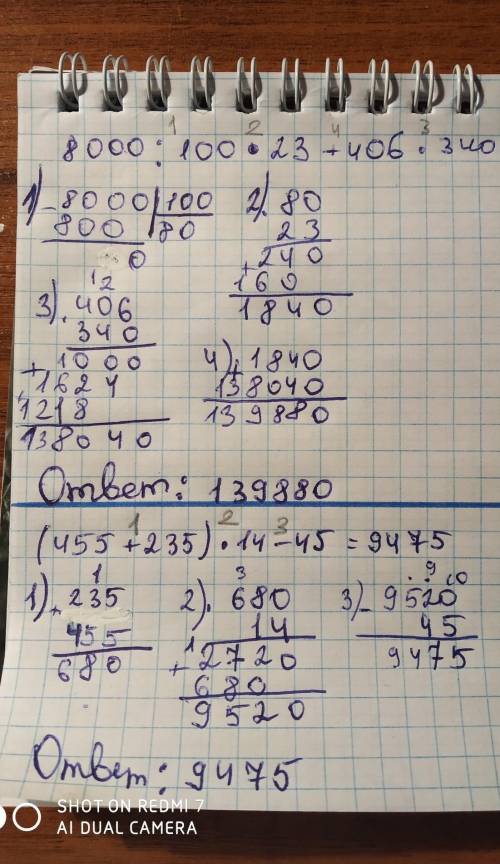 1 2 4 3
8000 : 100 · 23 + 406 · 340
1) - 8000 | 100
800 80
0
2) · 80
23
+ 240
160
1840
1 2
3) · 406
340
+ 1000
1624
1218
138040
4) + 1840
138040
139880
Ответ: 139880
1 2 3
(455 + 235) · 14 - 45 = 9475
1
1) + 235
455
680
3
2) · 680
14
1
+ 2720
680
9520
9 10
3) - 9520
45
9475
Ответ: 9475
SHOT ON REDMI 7
AI DUAL CAMERA